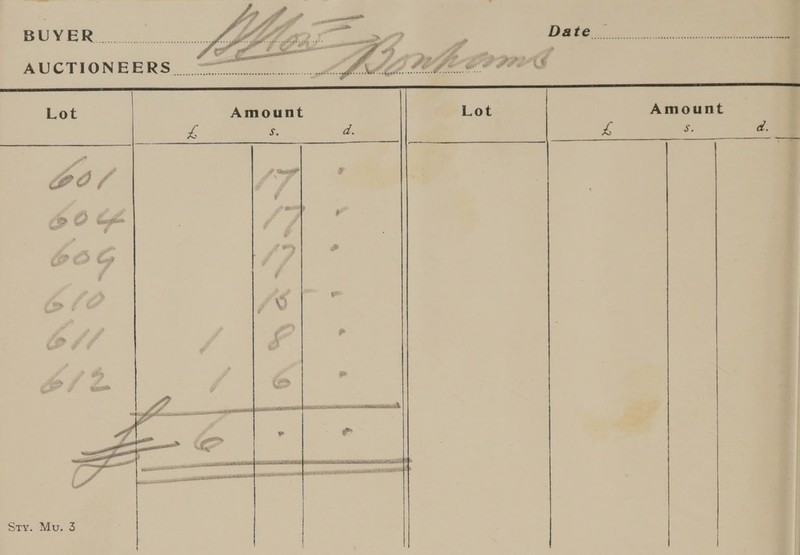 BUYER
Date
AUCTIONEERS Bonhams
Lot Amount Lot Amount
£ s. d. £ s. d.
601 17 "
604 17 "
609 17 "
610 15 "
611 1 8 "
612 1 6 "
£ 6 " "
STY. MU. 3